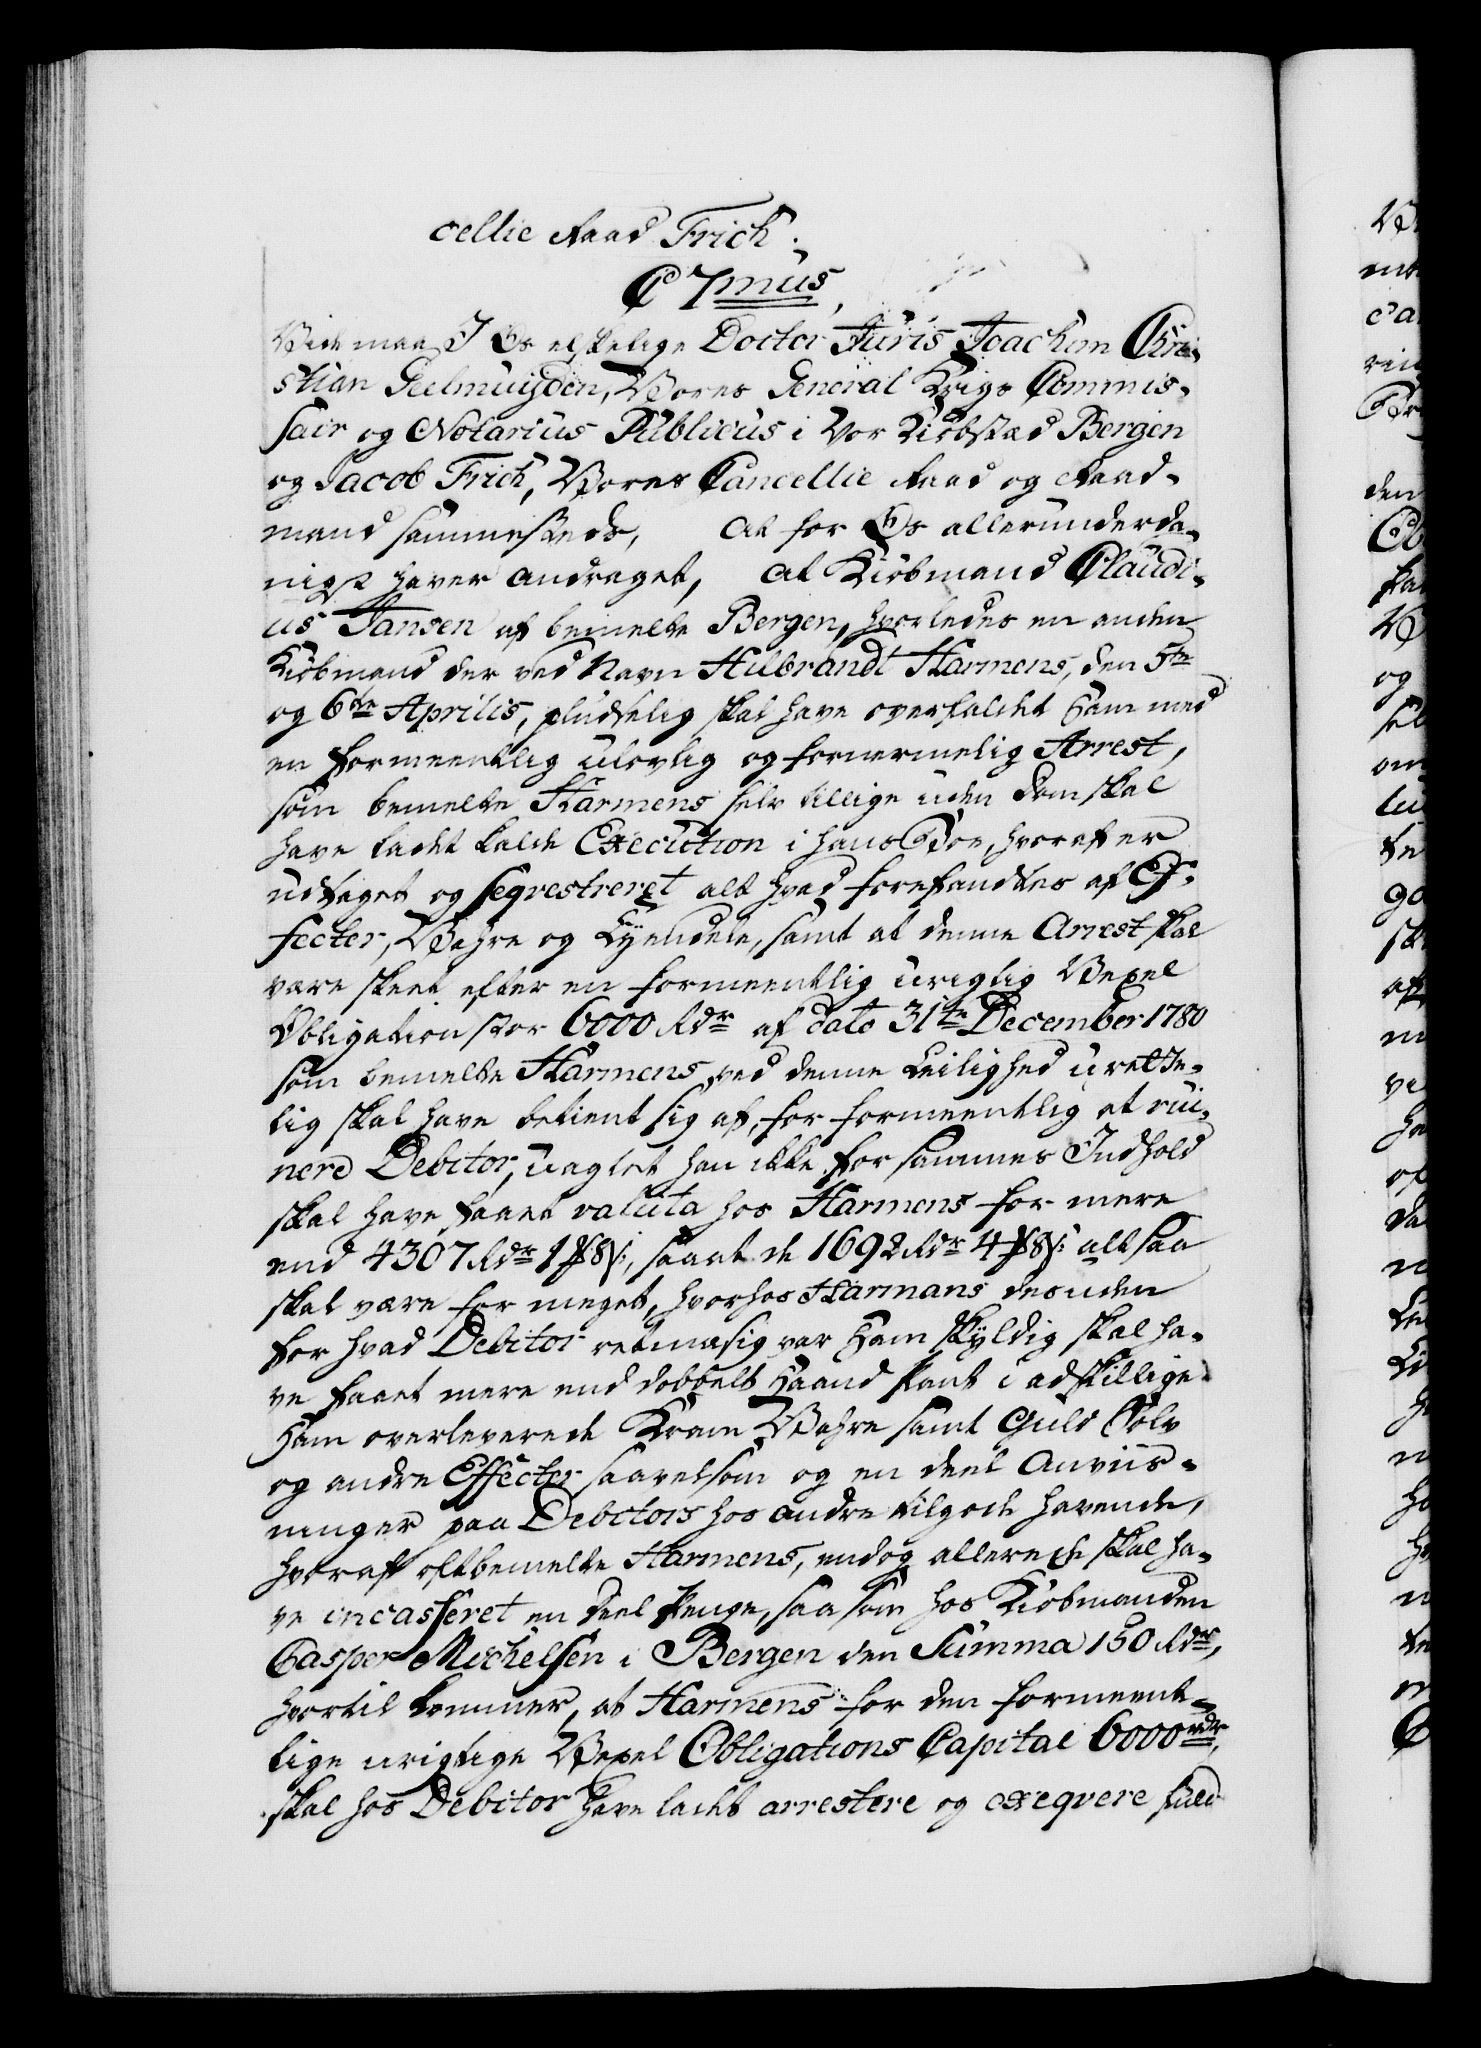 cellie Raad Frich.
C 7mus,
Vide maa I Os elskelige Doctor Juris Joachim Chri-
stian Geelmuyden, Vores General Krigs Commis-
sair og Notarius Publicus i Vor Kiøbstæd Bergen
og Jacob Frich, Vores Cancellie Raad og Raad-
mand sammesteds, at for Os allerunderda-
nigst haver andraget, at Kiøbmand Claudi-
us Jansen af bemelte Bergen, hvorledes en anden
Kiøbmand der ved Navn Hilbrandt Harmens, den 5te
og 6te Aprilis, pludselig skal have overfaldet Ham med
en formeentlig ulovlig og fornermelig Arrest,
som bemelte Harmens selv tillige uden Dom skal
have ladet kalde Execution i hans Boe, hvorefter
udtaget og seqvestreret alt hvad forefandtes af Ef-
fecter, Vahre og Eyendele, samt at denne Arrest skal
være skeet efter en formeentlig urigtig Vexel
Obligation stor 6000 Rdr af dato 31te December 1780
som bemelte Harmens ved denne Leilighed urette-
lig skal have betient sig af, for formeentlig at rui-
nere Debitor, uagtet han ikke for sammes Indhold
skal have faaet valuta hos Harmens for mere
end 4307 Rdr 1 ℔ 8 s:, saa at de 1692 Rdr 4 ℔ 8 s: altsaa
skal være for meget, hvorhos Harmans desuden
for hvad Debitor retmæsig var Ham skyldig skal ha-
ve faaet mere end dobbelt Haand Pant i adskillige
Ham overleverede Kram Vahre samt Guld Sølv
og andre Effecter saavelsom og en deel Anviis-
ninger paa Debitors hos andre tilgode havende,
hvoraf oftbemelte Harmens, endog allerede skal ha-
ve incasseret en deel Penge, saasom hos Kiøbmanden
Casper Michelsen i Bergen den Summa 150 Rdr,
hvortil kommer, at Harmens for den formeent-
lige urigtige Vexel Obligations Capital 6000 rdr,
skal hos Debitor have ladet arrestere og exeqvere fuld